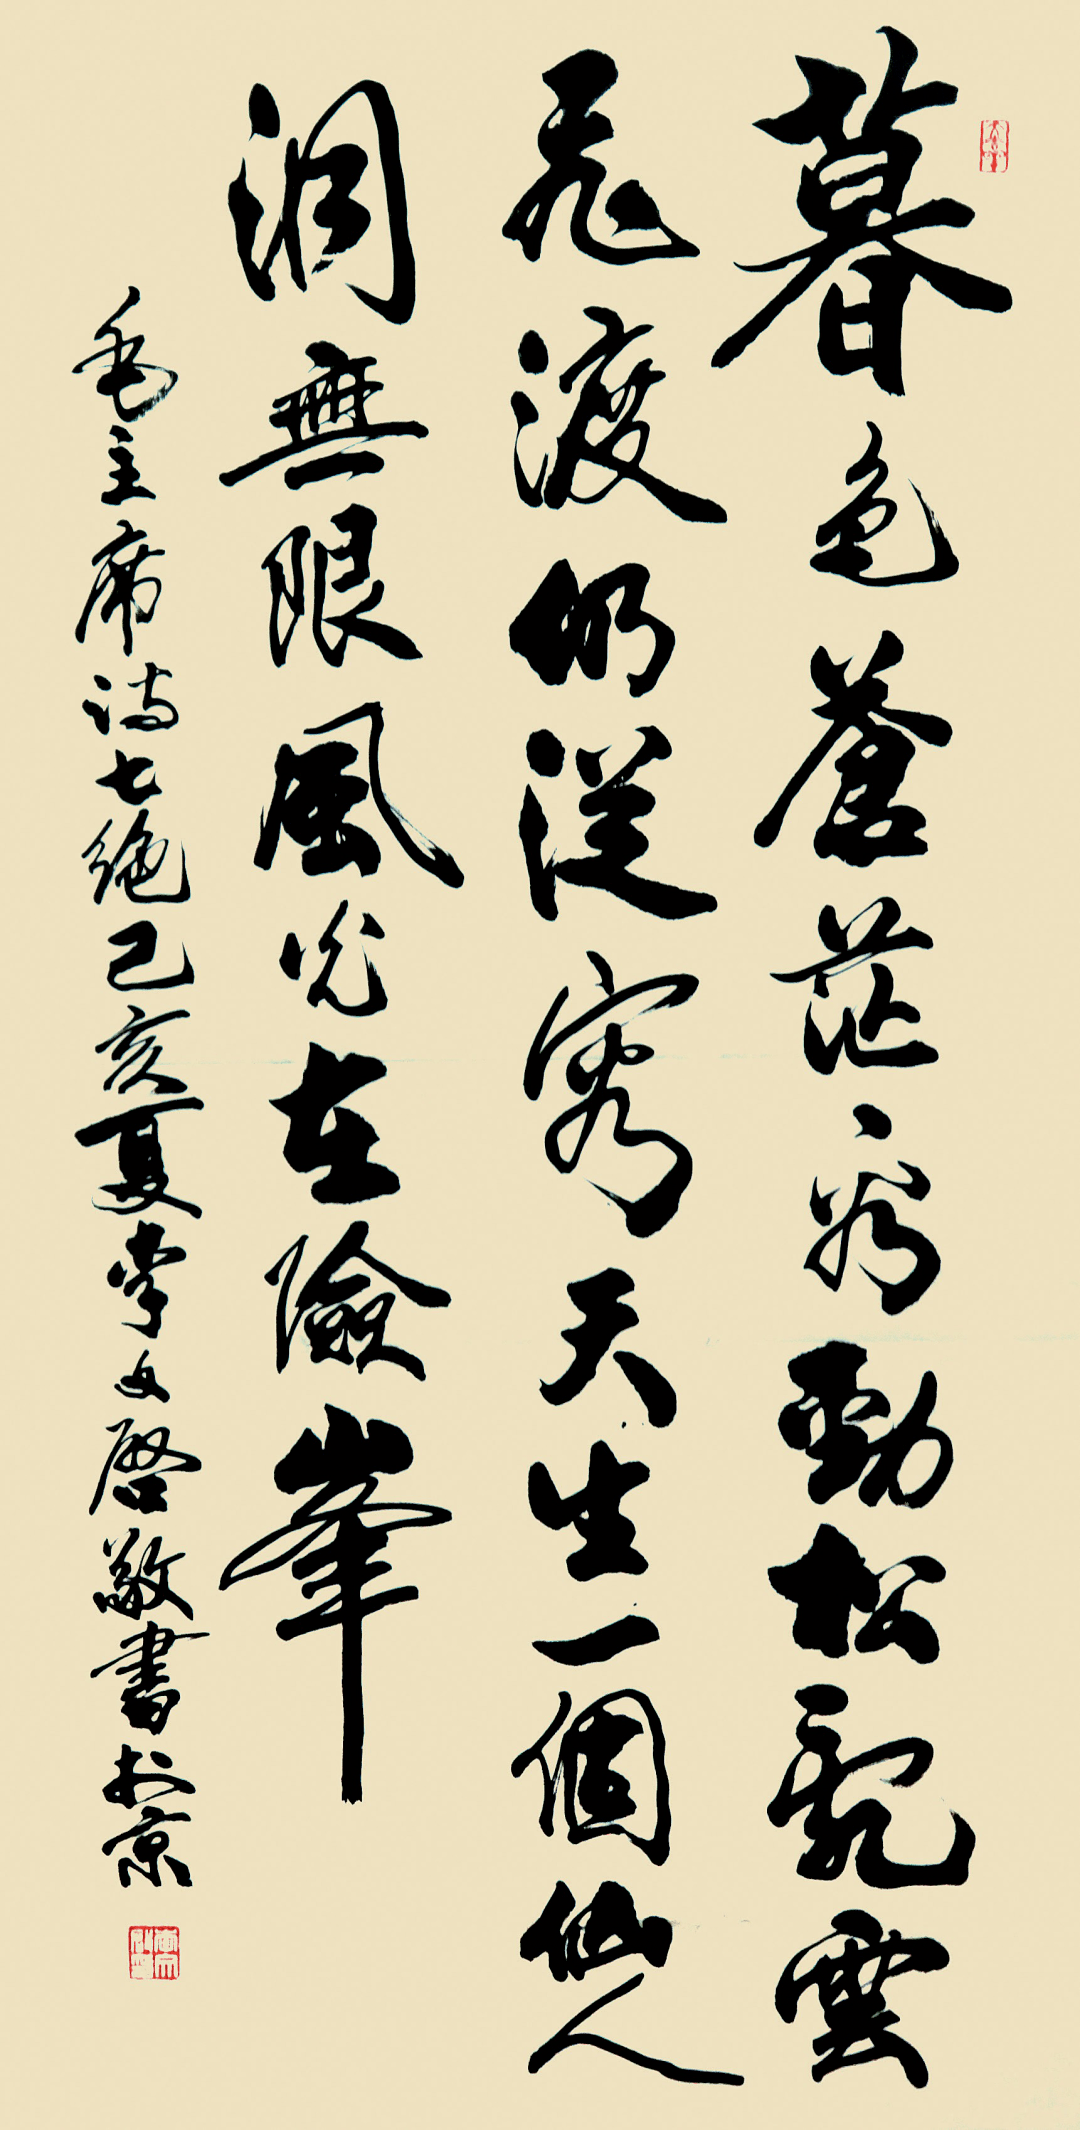 暮色蒼茫看勁松亂雲
飛渡仍從容天生一個仙人
洞無限風光在險峯
毛主席詩七絕己亥夏李文啓敬書於京